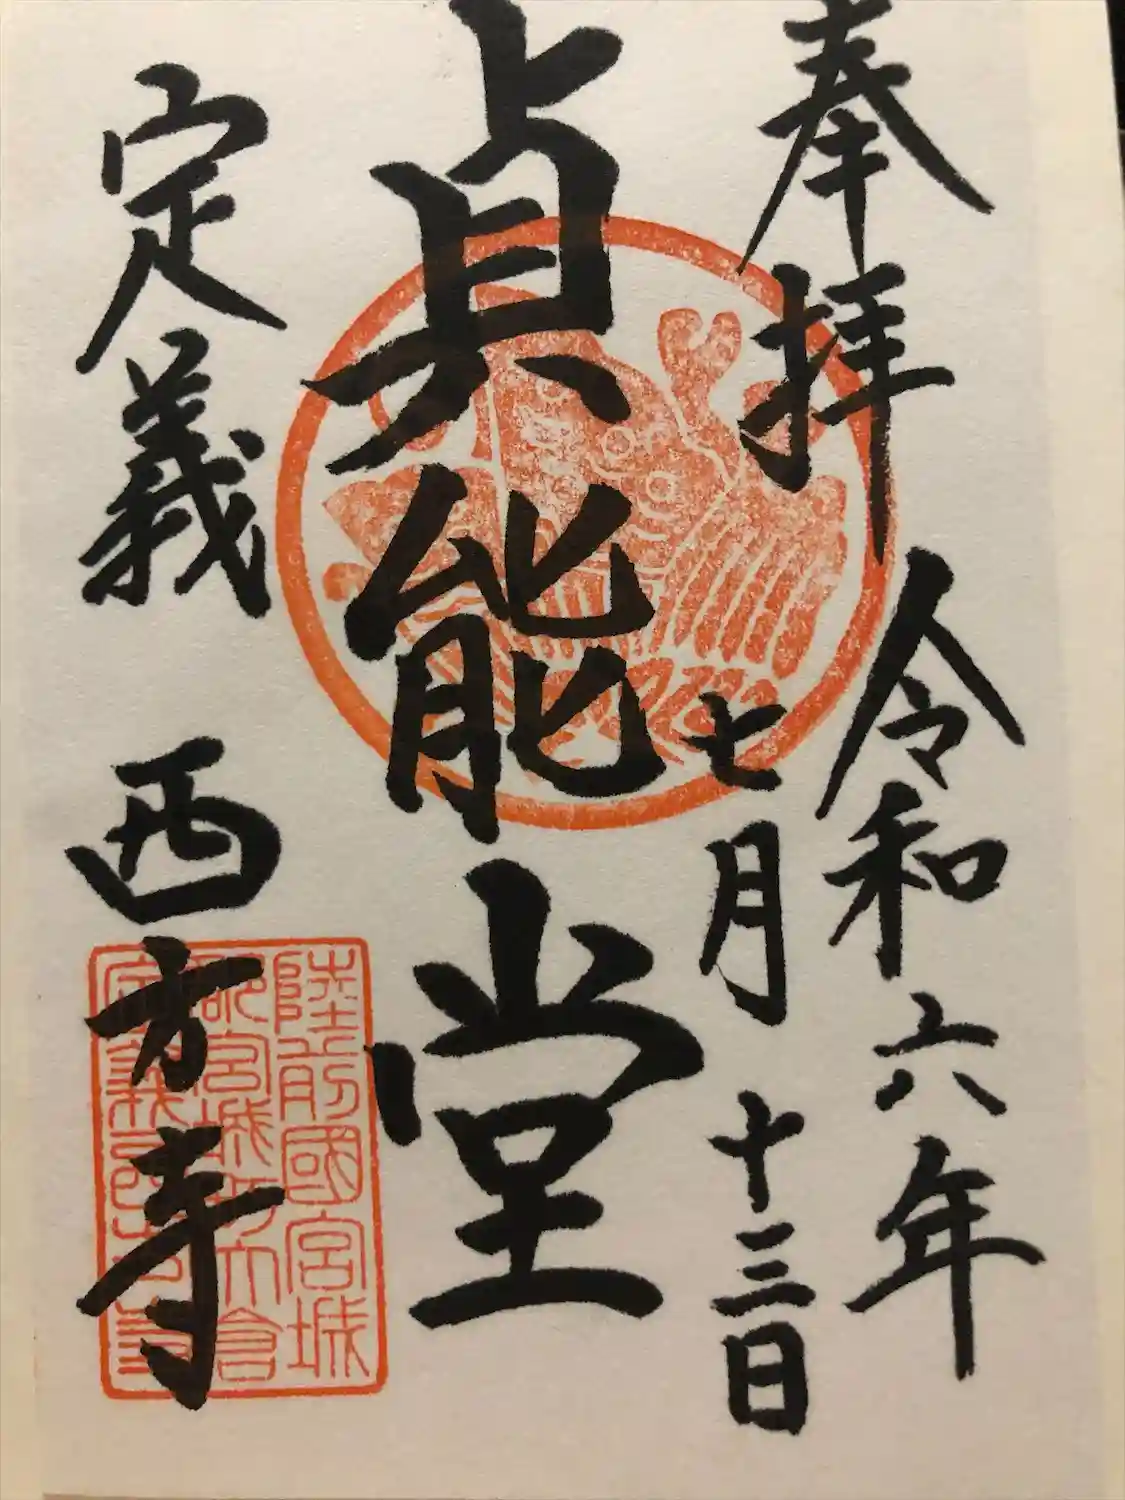 奉拝
令和六年
七月十三日
貞能堂
定義
西方寺
陸前國宮城
郡宮城村大倉